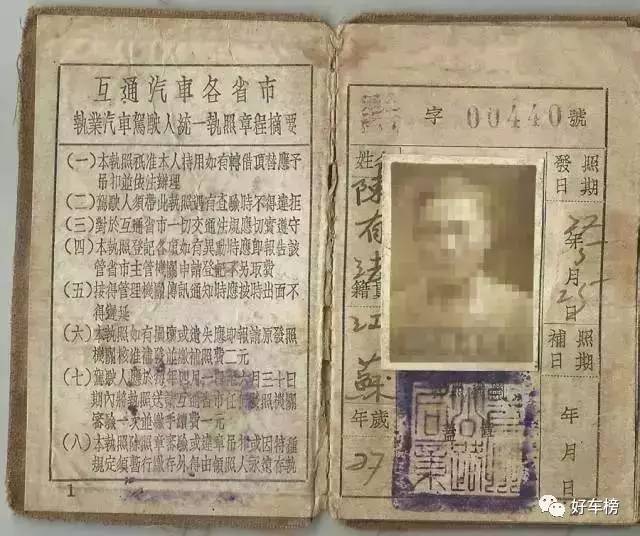 互通汽車各省市
執業汽車駕駛人統一執照章程摘要
(一)本執照祇准本人持用如有轉借頂替應予
吊扣並依法辦理
(二)駕駛人須帶此執照遇有查驗時不得違拒
(三)對於互通省市一切交通法規應切實遵守
(四)本執照登記各項如有異動時應卽報告該
管省市主管機關申請登記不另取費
(五)接得管理機關傳訊通知時應按時出面不
得遲延
(六)本執照如有損壞或遺失應卽報請原發照
機關核准補發並繳補照費二元
(七)駕駛人應於每年四月一日至六月三十日
期內將執照送葉互通省市任何發照機關
審驗一次並繳手續費一元
(八)本執照除照章審驗或違章吊扣或因特種
規定須暫行繳存外得由領照人永遠存執
1
字 00440 號
姓名
陳有
籍貫
江蘇
年歲
27
照期
發日
年
月
25
日
照期
補日
年
月
日
好车榜